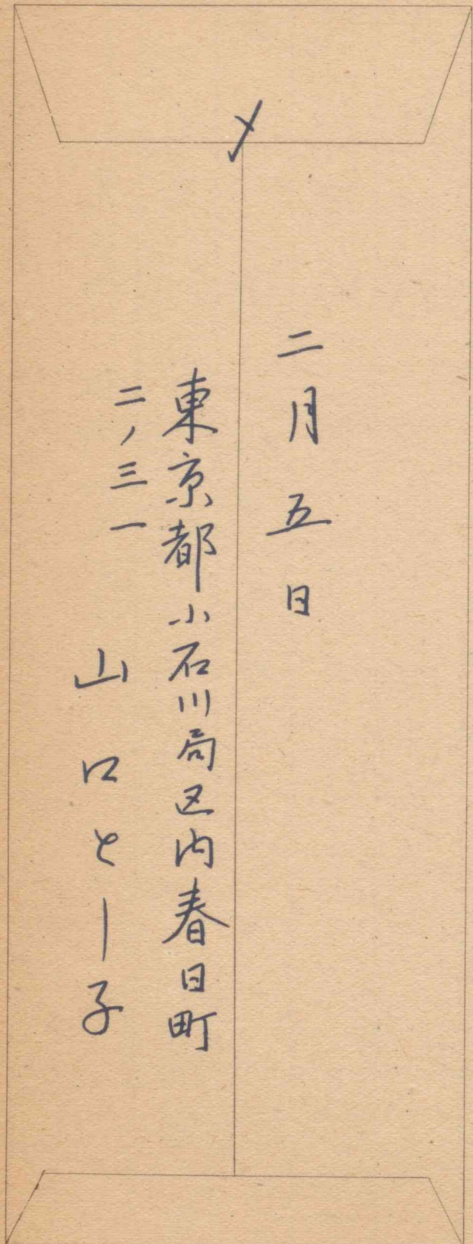 〆
二月五日
東京都小石川局区内春日町
二ノ三一
山口とし子